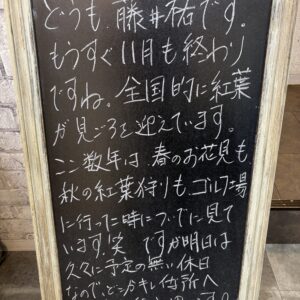 どうも、藤井祐です。
もうすぐ11月も終わり
ですね。全国的に紅葉
が見ごろを迎えています。
ここ数年は、春のお花見も
秋の紅葉狩りも、ゴルフ場
に行った時についでに見て
います。笑 ですが明日は
久々に予定の無い休日
なので、どこかキレイな所へ